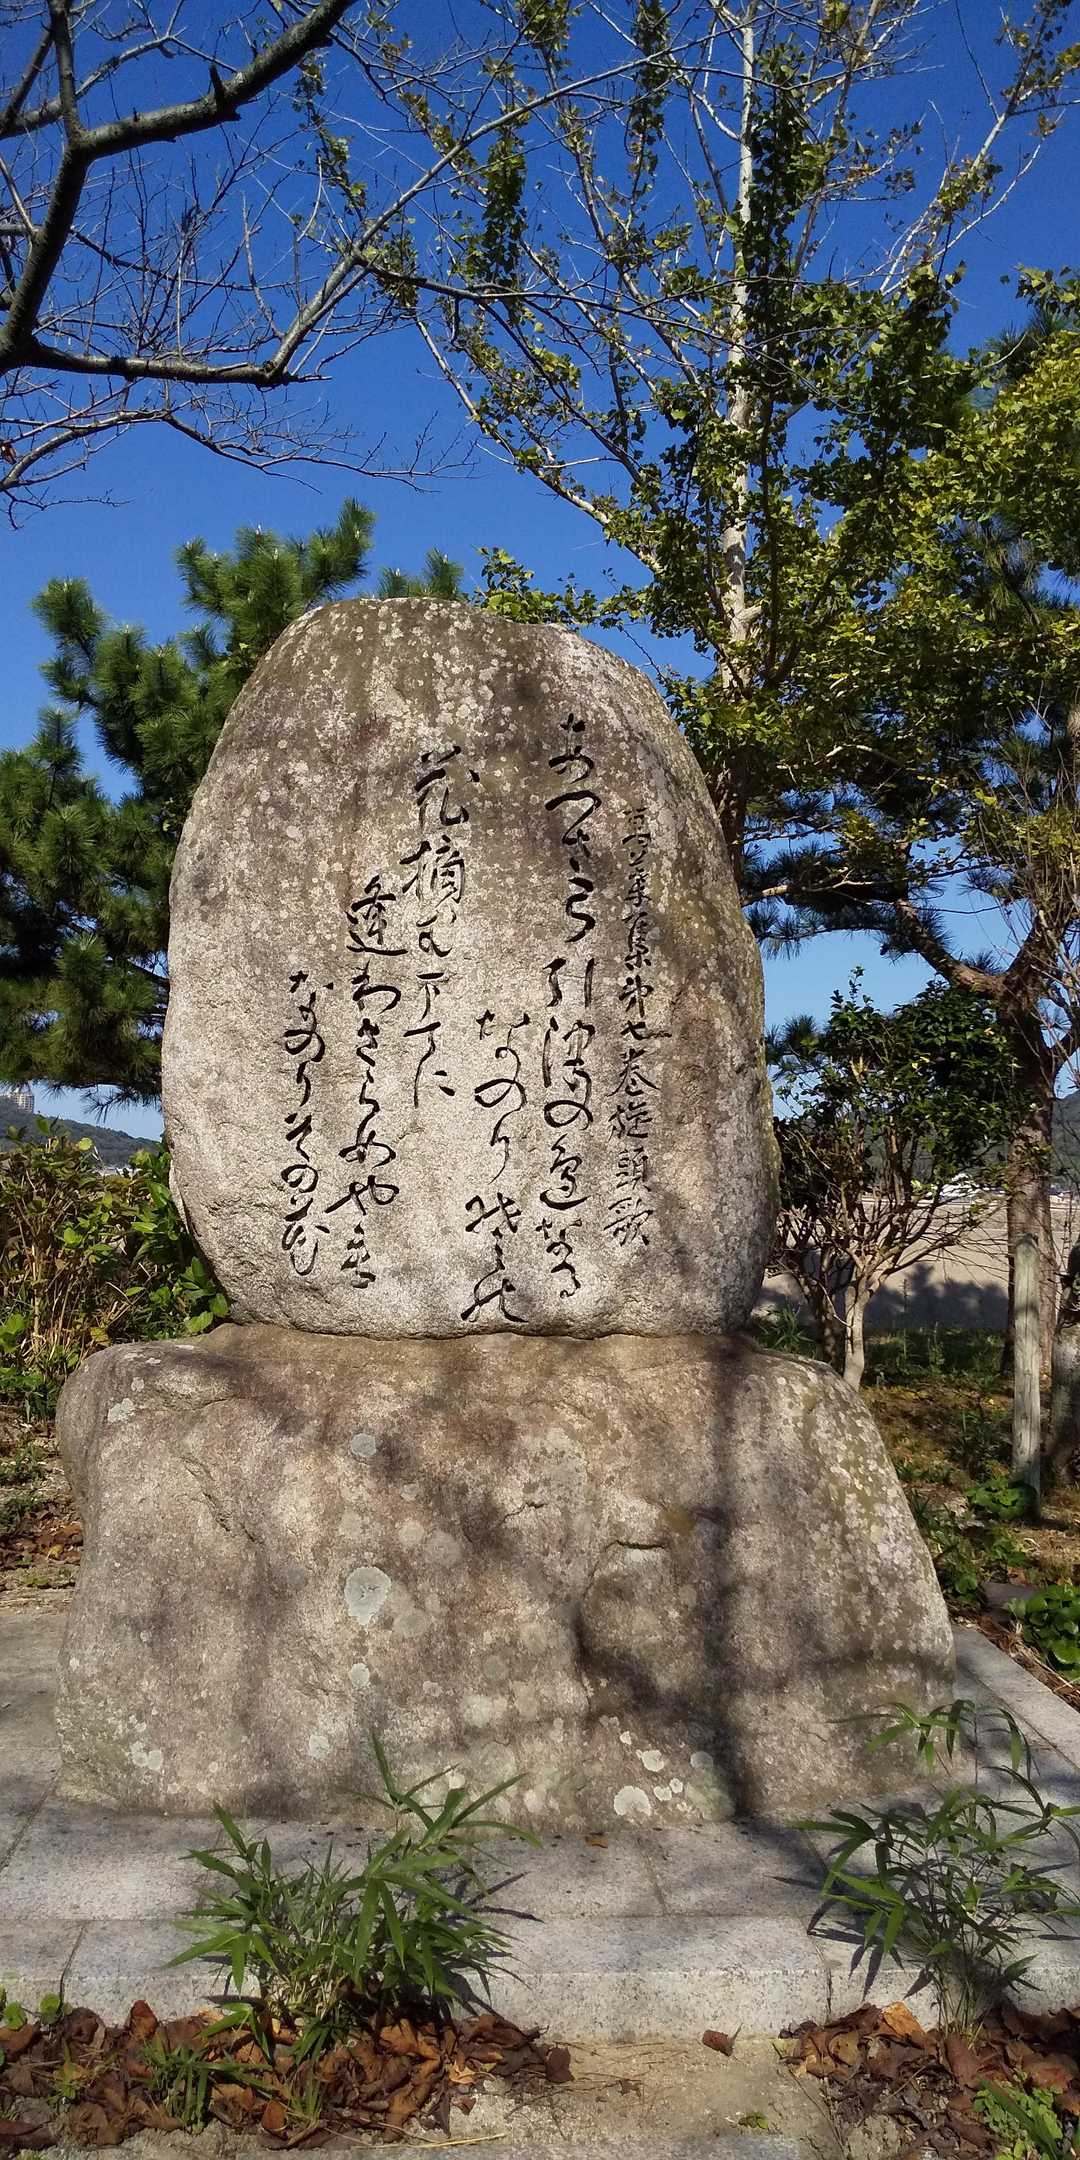 万葉集第七巻旋頭歌
あつさ弓引津の邊なる
なのりその
花摘むまてに
逢わさらめやも
なのりその花